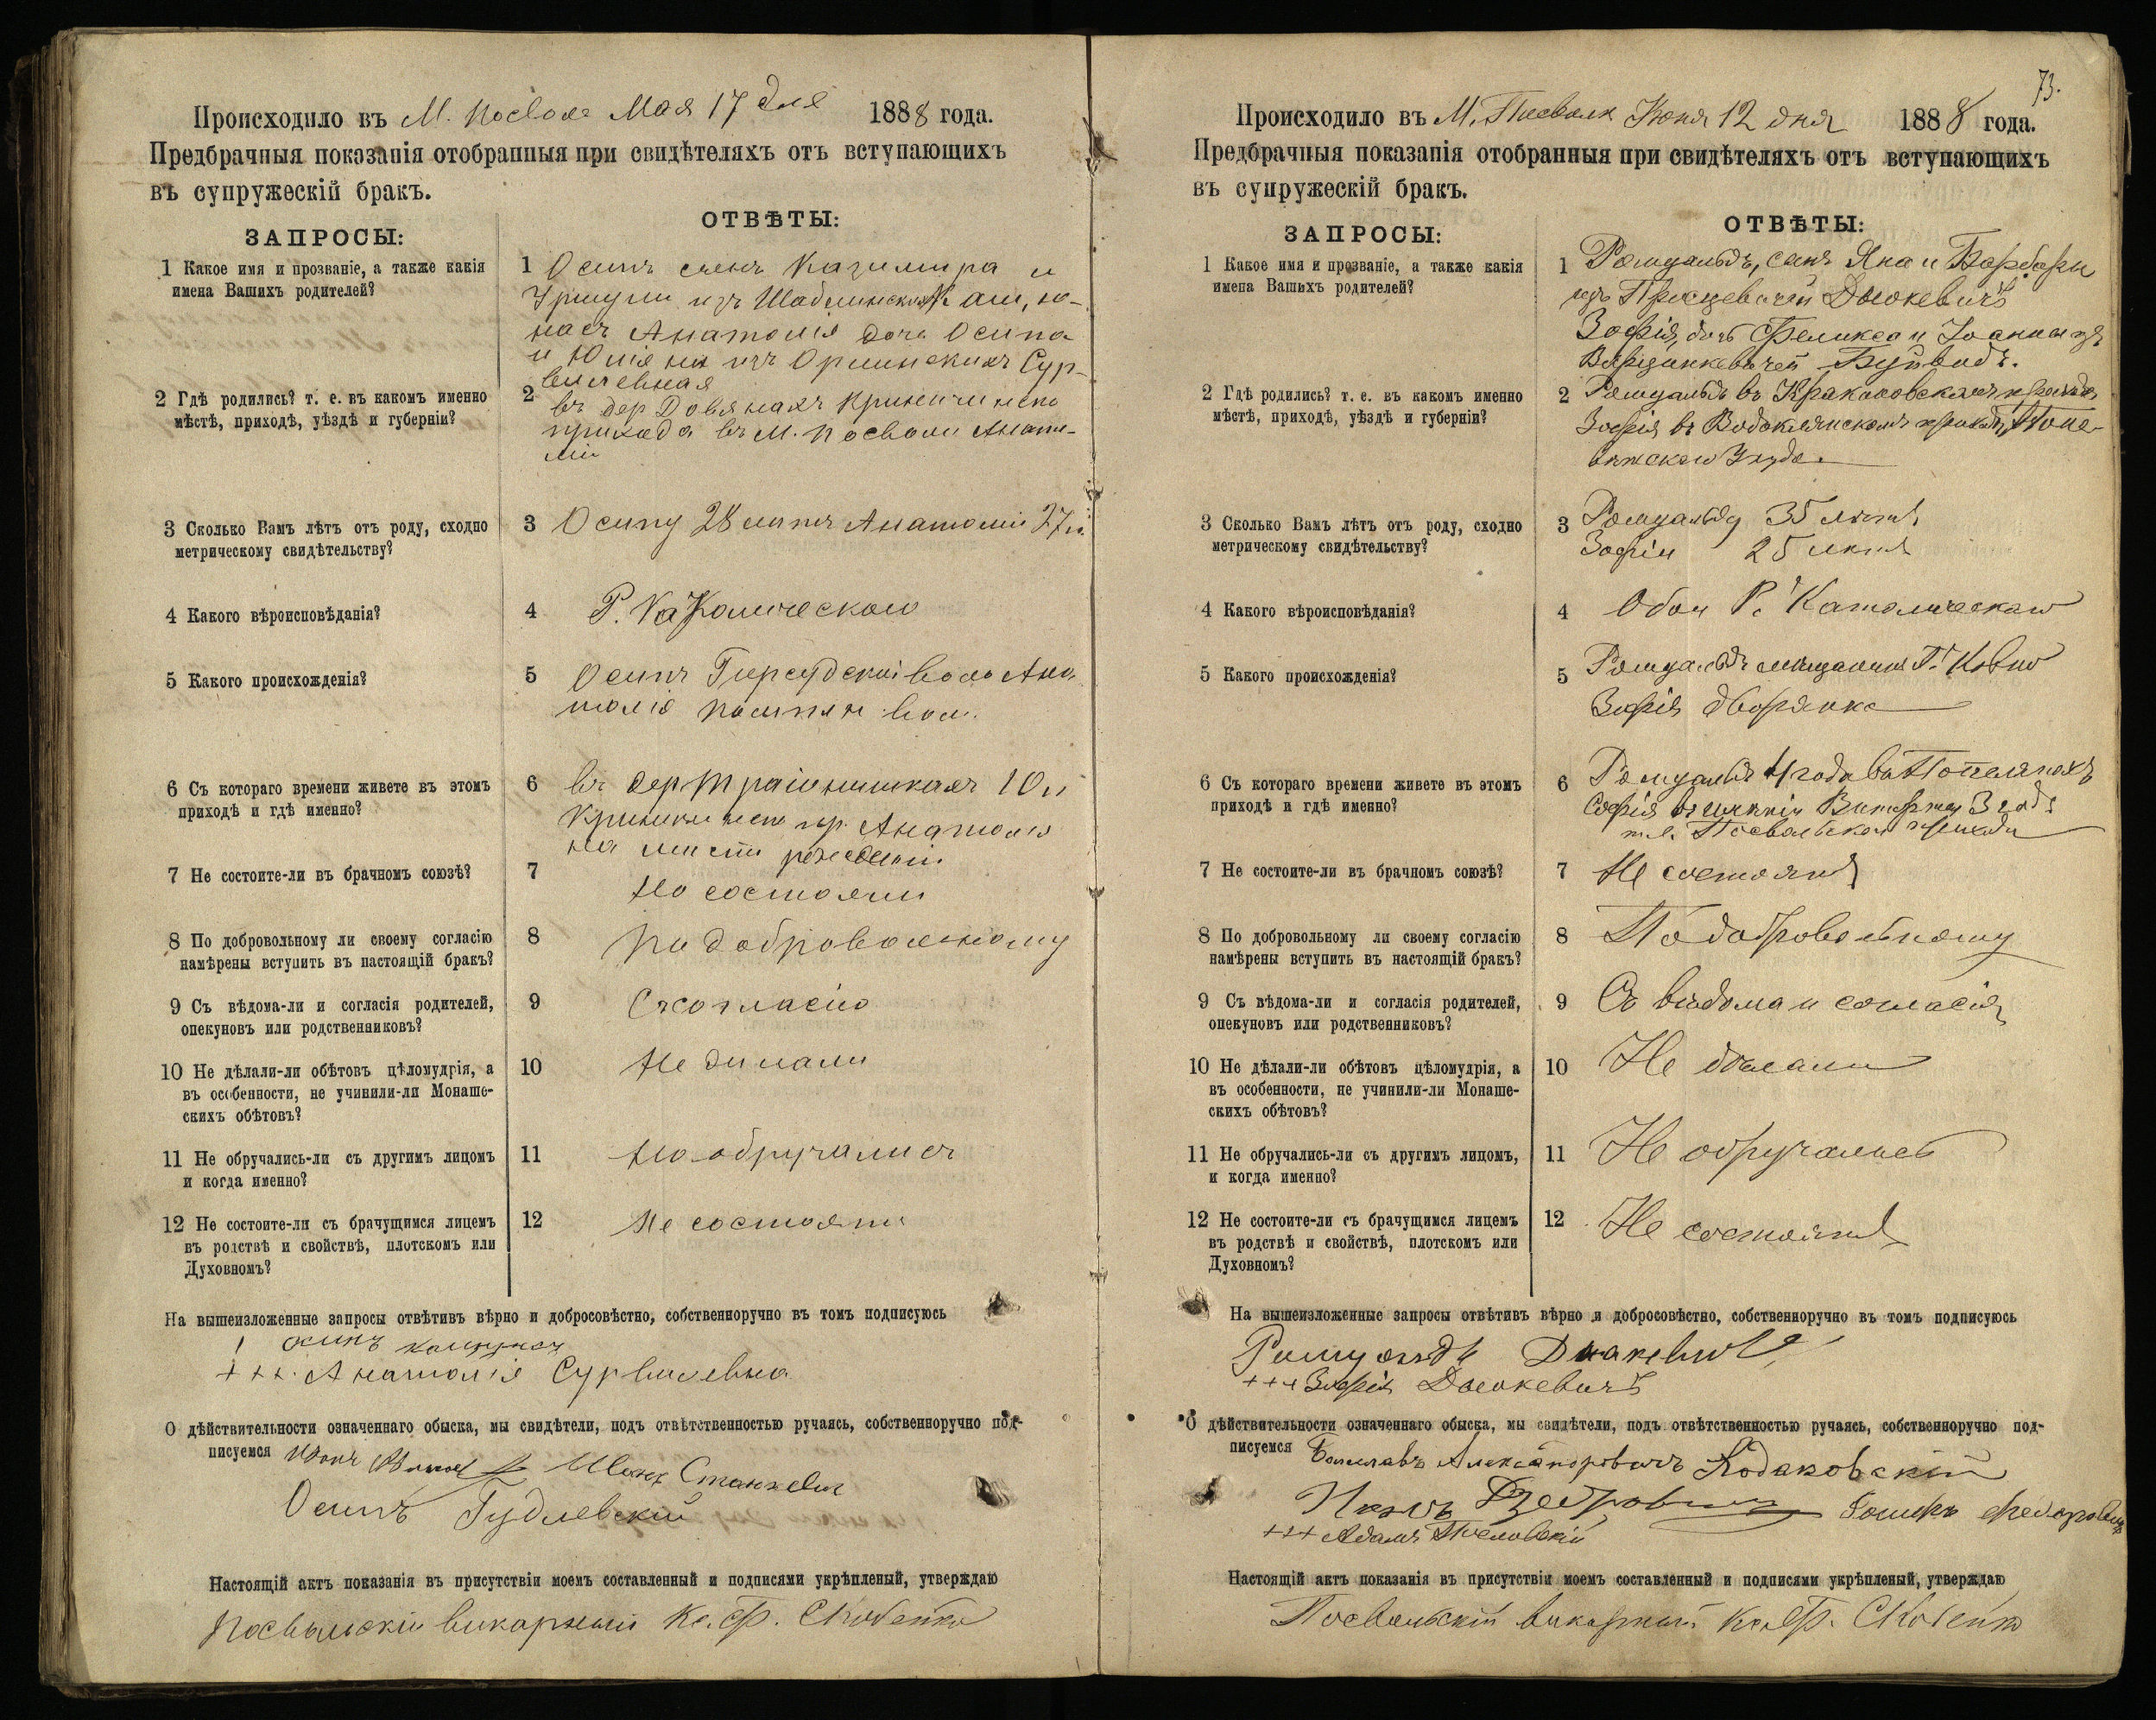 Происходило въ М. Посволе Мая 17 дня 1888 года.
Предбрачныя показанія отобранныя при свидѣтеляхъ отъ вступающихъ
въ супружескій бракъ.
ЗАПРОСЫ:
ОТВѢТЫ:
1 Какое имя и прозваніе, а также какія
имена Вашихъ родителей?
1 Осипъ сынъ Казимира и
Уршули изъ
Анатолія дочь Осипа
и Юліянны изъ Оршинскихъ Сур-
вилевная
2 Гдѣ родились? т. е. въ какомъ именно
мѣстѣ, приходѣ, уѣздѣ и губерніи?
2 въ дер Довянахъ
прихода въ М. Посволи Анато-
ли
3 Сколько Вамъ лѣтъ отъ роду, сходно
метрическому свидѣтельству?
3 Осипу 28 Анатоліи 27
4 Какого вѣроисповѣданія?
4 Р. Католическаго
5 Какого происхожденія?
5 Осипъ Анa
толія вол.
6 Съ котораго времени живете въ этомъ
приходѣ и гдѣ именно?
6 въ дер 10
пр. Анатолія
на мисти рожденіи
7 Не состоите-ли въ брачномъ союзѣ?
7 Не состояли
8 По добровольному ли своему согласію
намѣрены вступить въ настоящій бракъ?
8 По добровольному
9 Съ вѣдома-ли и согласія родителей,
опекуновъ или родственниковъ?
9 Съ согласію
10 Не дѣлали-ли обѣтовъ цѣломудрія, а
въ особенности, не учинили-ли Монаше-
скихъ обѣтовъ?
10 Не дилали
11 Не обручались-ли съ другимъ лицомъ
и когда именно?
11 Не обручались
12 Не состоите-ли съ брачущимся лицемъ
въ родствѣ и свойствѣ, плотскомъ или
Духовномъ?
12 Не состояти
На вышеизложенные запросы отвѣтивъ вѣрно и добросовѣстно, собственноручно въ томъ подписуюсь
Осипъ
+++ Анатолія Сурвилевна
О дѣйствительности означеннаго обыска, мы свидѣтели, подъ отвѣтственностью ручаясь, собственноручно под-
писуемся Станкевич
Осипъ Гудлевскій
Настоящій актъ показанія въ присутствіи моемъ составленный и подписями укрѣпленый, утверждаю
Посвольскій викарный Кс. Ф.
73.
Происходило въ М. Посволь Июня 12 дня 1888 года.
Предбрачныя показанія отобранныя при свидѣтеляхъ отъ вступающихъ
въ супружескій бракъ.
ЗАПРОСЫ:
ОТВѢТЫ:
1 Какое имя и прозваніе, а также какія
имена Вашихъ родителей?
1 Ромуальдъ, сынъ Яна и Барбары
изъ Дыокевичъ
Зофія, дочь Феликса и Іоанны изъ
Буйвидъ.
2 Гдѣ родились? т. е. въ какомъ именно
мѣстѣ, приходѣ, уѣздѣ и губерніи?
2 Ромуальдъ въ Кракиновскомъ приходѣ,
Зофія въ Водоклянскомъ приходѣ, Поне-
вѣжскаго Уѣзда.
3 Сколько Вамъ лѣтъ отъ роду, сходно
метрическому свидѣтельству?
3 Ромуальду 35 лѣтъ
Зофіи 25 лѣтъ
4 Какого вѣроисповѣданія?
4 Обои Р. Католическаго
5 Какого происхожденія?
5 Ромуальдъ мѣщанинъ Г. Ковно
Зофія дворянка
6 Съ котораго времени живете въ этомъ
приходѣ и гдѣ именно?
6 Ромуальдъ 4 года въ Попелянахъ
Софія въ имѣніи 3 года
Посвольскаго прихода
7 Не состоите-ли въ брачномъ союзѣ?
7 Не состоятъ
8 По добровольному ли своему согласію
намѣрены вступить въ настоящій бракъ?
8 По добровольному
9 Съ вѣдома-ли и согласія родителей,
опекуновъ или родственниковъ?
9 Съ вѣдома и согласія
10 Не дѣлали-ли обѣтовъ цѣломудрія, а
въ особенности, не учинили-ли Монаше-
скихъ обѣтовъ?
10 Не дѣлали
11 Не обручались-ли съ другимъ лицомъ,
и когда именно?
11 Не обручались
12 Не состоите-ли съ брачущимся лицемъ
въ родствѣ и свойствѣ, плотскомъ или
Духовномъ?
12 Не состоятъ
На вышеизложенные запросы отвѣтивъ вѣрно и добросовѣстно, собственноручно въ томъ подписуюсь
Ромуальдъ
+++ Зофія Дыокевичъ
О дѣйствительности означеннаго обыска, мы свидѣтели, подъ отвѣтственностью ручаясь, собственноручно под-
писуемся Болеславъ Александровичъ Кодаковскій
+++ Адамъ
Настоящій актъ показанія въ присутствіи моемъ составленный и подписями укрѣпленый, утверждаю
Посвольскій викарный Кс. Ф.